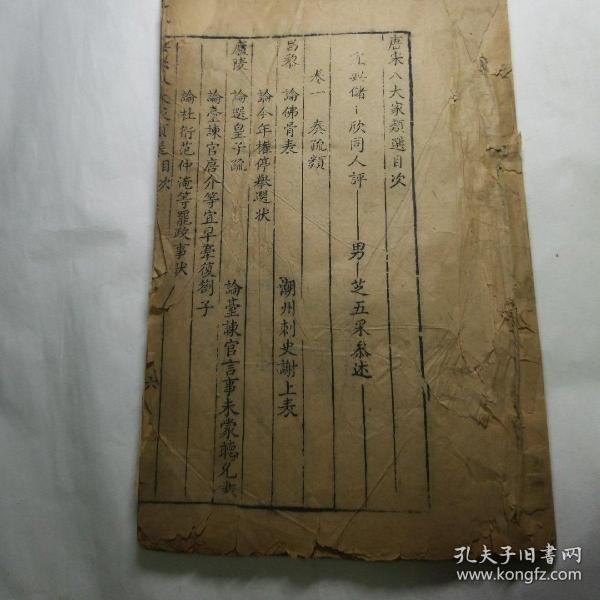 唐宋八大家類選目次
宜興儲欣同人評 男芝五采參述
卷一 奏疏類
昌黎 論佛骨表 潮州刺史謝上表
論今年權停舉選狀
廬陵 論選皇子疏 論臺諫官言事未蒙聽允書
論臺諫官唐介等宜早牽復劄子
論杜衍范仲淹等罷政事狀
目次
六
孔夫子旧书网
www.kongfz.com